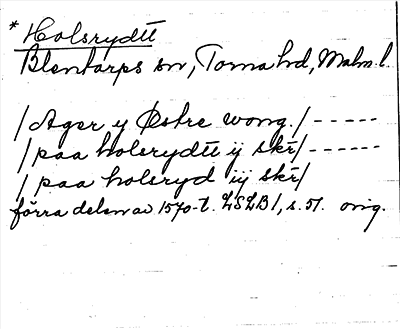 * Holsrydtt
Blentarps sn, Torna hd, Malm. l.
/ Ager y Østre wong / -----
/ paa holsrydtt ij skr/ ------
/ paa holsryd iij skr/
förra delen av 1570-t. LSLB I, s. 51. orig.